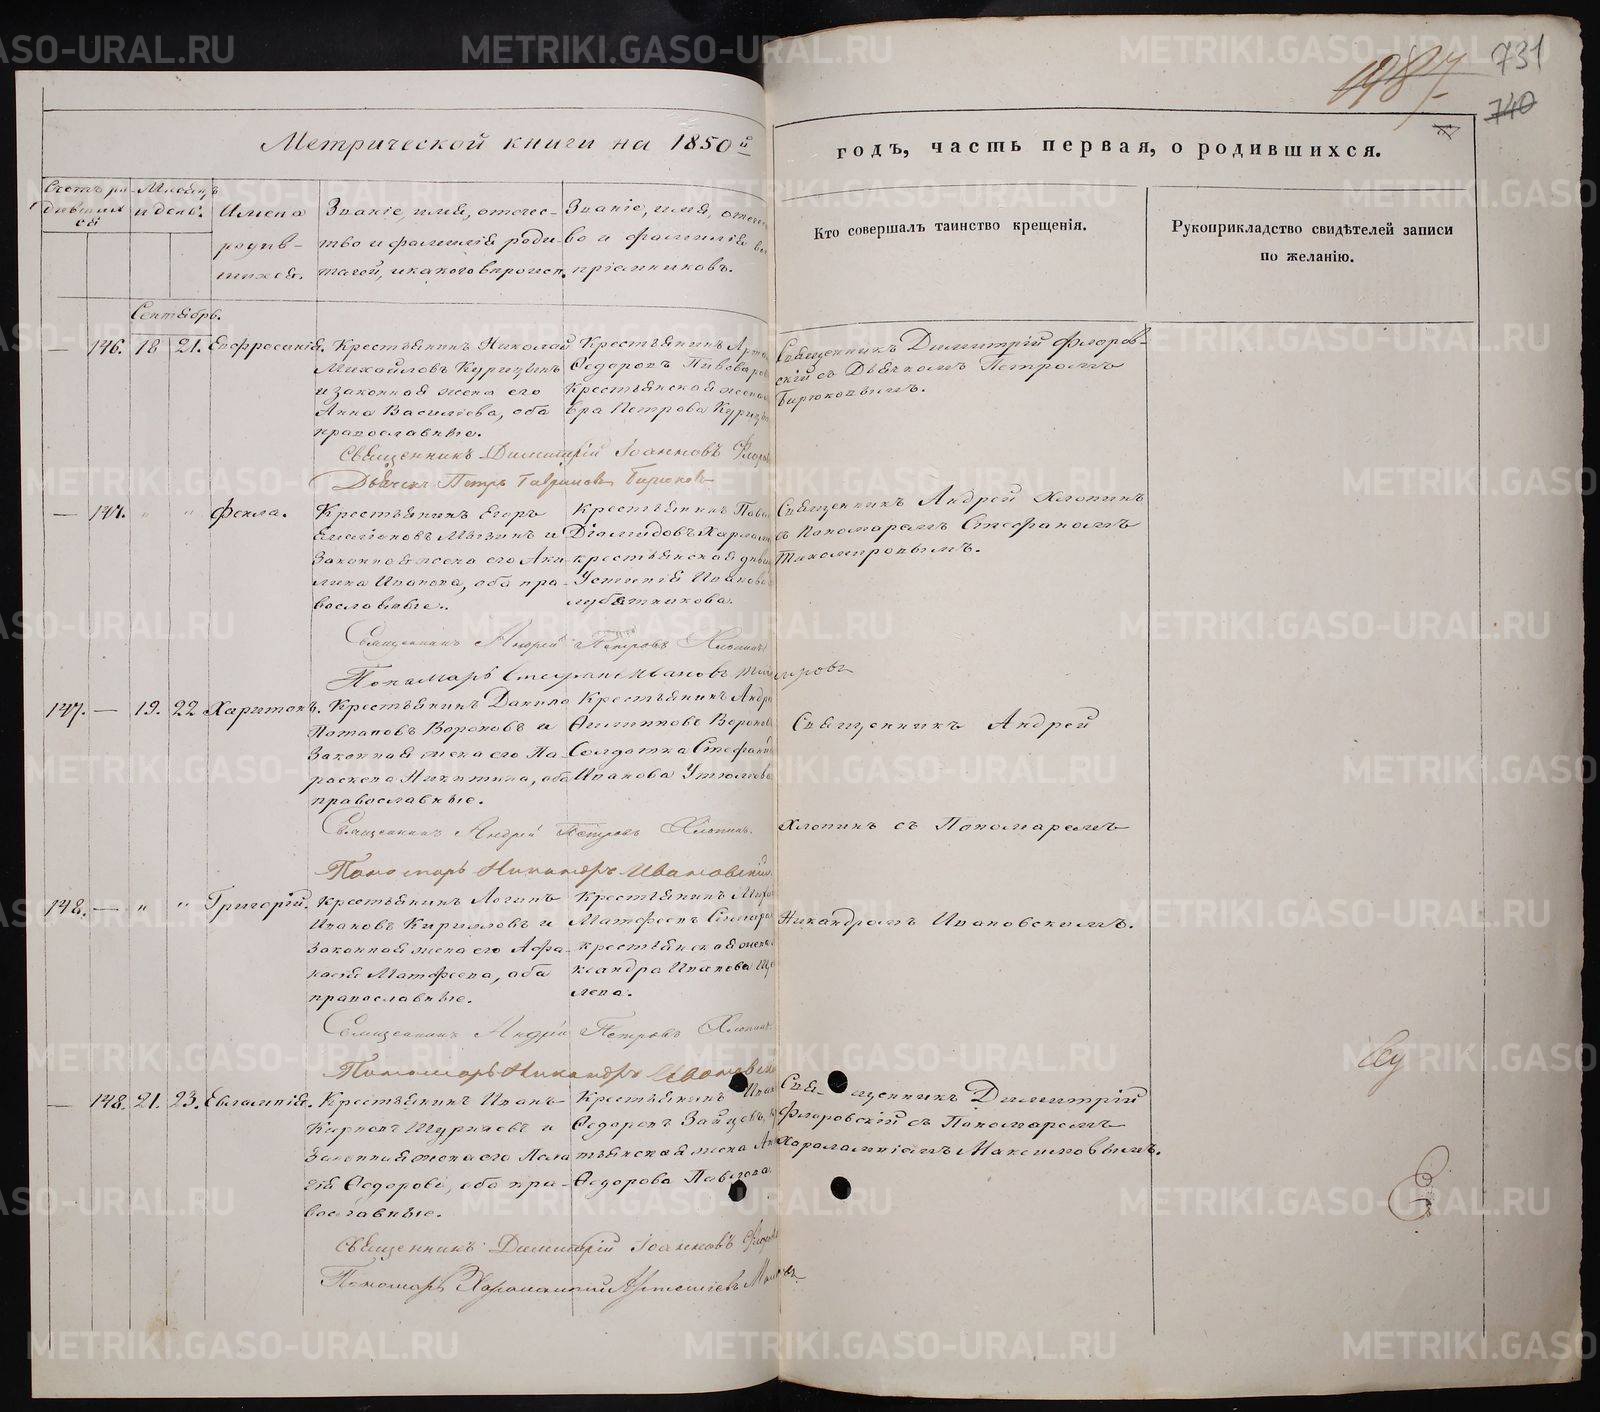 731
740
Метрической книги на 1850й
годъ, часть первая, о родившихся.
Счетъ ро-
дивших
ся
Мѣсяцъ
и день.
Имена
родив-
шихся.
Званіе, имя, отечес-
тво и фамилія роди-
телей, и какого вѣроисп.
Званіе, имя, отечес
во и фамилія во
пріемниковъ.
Кто совершалъ таинство крещенія.
Рукоприкладство свидѣтелей записи
по желанію.
Сентябрь.
— 146. 18 21. Евфросинія.
Крестьянинъ Николай
Михайловъ Курицынъ
и законная жена его
Анна Васильева, оба
православные.
Крестьянинъ Арте
Ѳедоровъ Пивоваров
крестьянская жена
Петрова Куриц
Священникъ Димитрій Флоров-
скій съ Дьячкомъ Петромъ
Бирюковымъ.
Священникъ Димитрій Іоанновъ Флоров
Дьячекъ Петръ Гавриловъ Бирюковъ
— 147. „ „ Фекла.
Крестьянинъ Егоръ
Мызинъ и
законная жена его Аку
лина Иванова, оба пра-
вославные.
Крестьянинъ Паве
Діомидовъ Харлам
крестьянская
Устинія Иванова
Священникъ Андрей Хлопинъ
съ Пономаремъ Стефаномъ
Тихомировымъ.
Священникъ Андрей Петровъ Хлопинъ
Пономарь Стефанъ Ивановъ Тихомировъ
147. — 19. 22 Харитонъ.
Крестьянинъ Данило
Потаповъ Вороновъ и
законная жена его Па-
раскева Никитина, оба
православные.
Крестьянинъ Андре
Филипповъ Воронов
Солдатка Стефани
Иванова Утюмова
Священникъ Андрей
Священникъ Андрей Петровъ Хлопинъ.
Хлопинъ съ Пономаремъ
Пономарь Никандръ Ивановскій
148. — „ „ Григорій.
Крестьянинъ Логинъ
Ивановъ Кирилловъ и
законная жена его Афа-
насія Матфеева, оба
православные.
Крестьянинъ
Матфеевъ
крестьянская жена
ксандра Иванова Ще
лева.
Никандромъ Ивановскимъ.
Священникъ Андрей Петровъ Хлопинъ
Пономарь Никандръ Ивановскій
— 148. 21. 23. Евлампія.
Крестьянинъ Иванъ
Карповъ Шурмевъ и
законная жена его
Ѳедорова, оба пра-
вославные.
Крестьянинъ Иван
Ѳедоровъ Зайцевъ, кр
тьянская жена Ан
Ѳедорова Павлова
Священникъ Димитрій
Флоровскій съ Пономаремъ
Харалампіемъ Максимовымъ.
Священникъ Димитрій Іоанновъ Флоров
Пономарь Харалампій Артемьевъ
METRIKI.GASO-URAL.RU